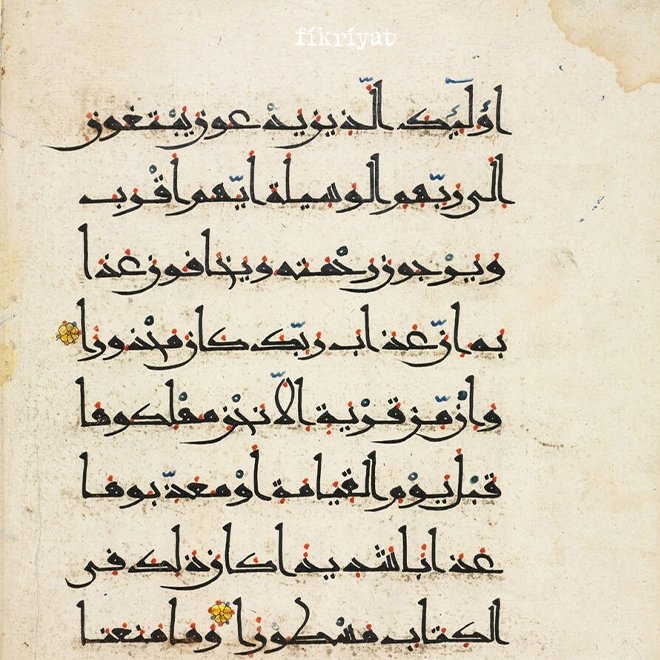 fikriyat
أولئك الذين يدعون يبتغون
إلى ربهم الوسيلة أيهم أقرب
ويرجون رحمته ويخافون عذا
به إن عذاب ربك كان محذورا
وإن من قرية إلا نحن مهلكوها
قبل يوم القيامة أو معذبوها
عذابا شديدا كان ذلك في
الكتاب مسطورا وما منعنا